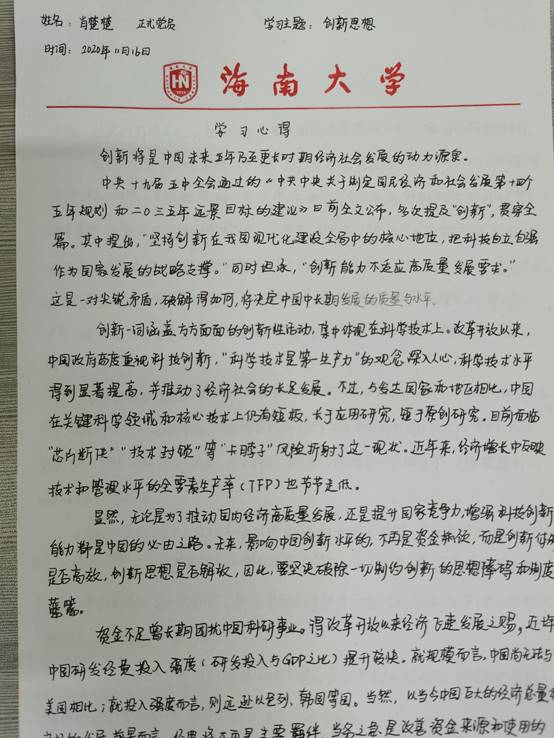 姓名：肖楚楚 正式党员 学习主题：创新思想
时间：2020年11月16日
海南大学
学习心得
创新将是中国未来五年乃至更长时期经济社会发展的动力源泉。
中央十九届五中全会通过的《中共中央关于制定国民经济和社会发展第十四个
五年规划和二〇三五年远景目标的建议》日前全文公布，多次提及"创新"，贯穿全
篇。其中提出，"坚持创新在我国现代化建设全局中的核心地位，把科技自立自强
作为国家发展的战略支撑。"同时坦承，"创新能力不适应高质量发展要求。"
这是一对尖锐矛盾，破解得如何，将决定中国中长期发展的质量与水平。
创新一词涵盖方方面面的创新性活动，集中体现在科学技术上。改革开放以来，
中国政府高度重视科技创新，"科学技术是第一生产力"的观念深入人心，科学技术水平
得到显著提高，并推动了经济社会的长足发展。不过，与发达国家和地区相比，中国
在关键科学领域和核心技术上仍有短板，长于应用研究，短于原创研究。目前面临
"芯片断供""技术封锁"等"卡脖子"风险折射了这一现状。近年来，经济增长中反映
技术和管理水平的全要素生产率（TFP）也节节走低。
显然，无论是为了推动国内经济高质量发展，还是提升国家竞争力，增强科技创新
能力都是中国的必由之路。未来，影响中国创新水平的，不再是资金投放，而是创新体制
是否高效，创新思想是否解放，因此，要坚决破除一切制约创新的思想障碍和制度
藩篱。
资金不足曾长期困扰中国科研事业。得改革开放以来经济飞速发展之赐，近年
中国研发经费投入强度（研发投入与GDP之比）提升较快。就规模而言，中国尚无法与
美国相比；就投入强度而言，则远逊以色列、韩国等国。当然，以当今中国巨大的经济总量和
前景而言，经费将不再是主要羁绊，当务之急是改善资金来源和使用的